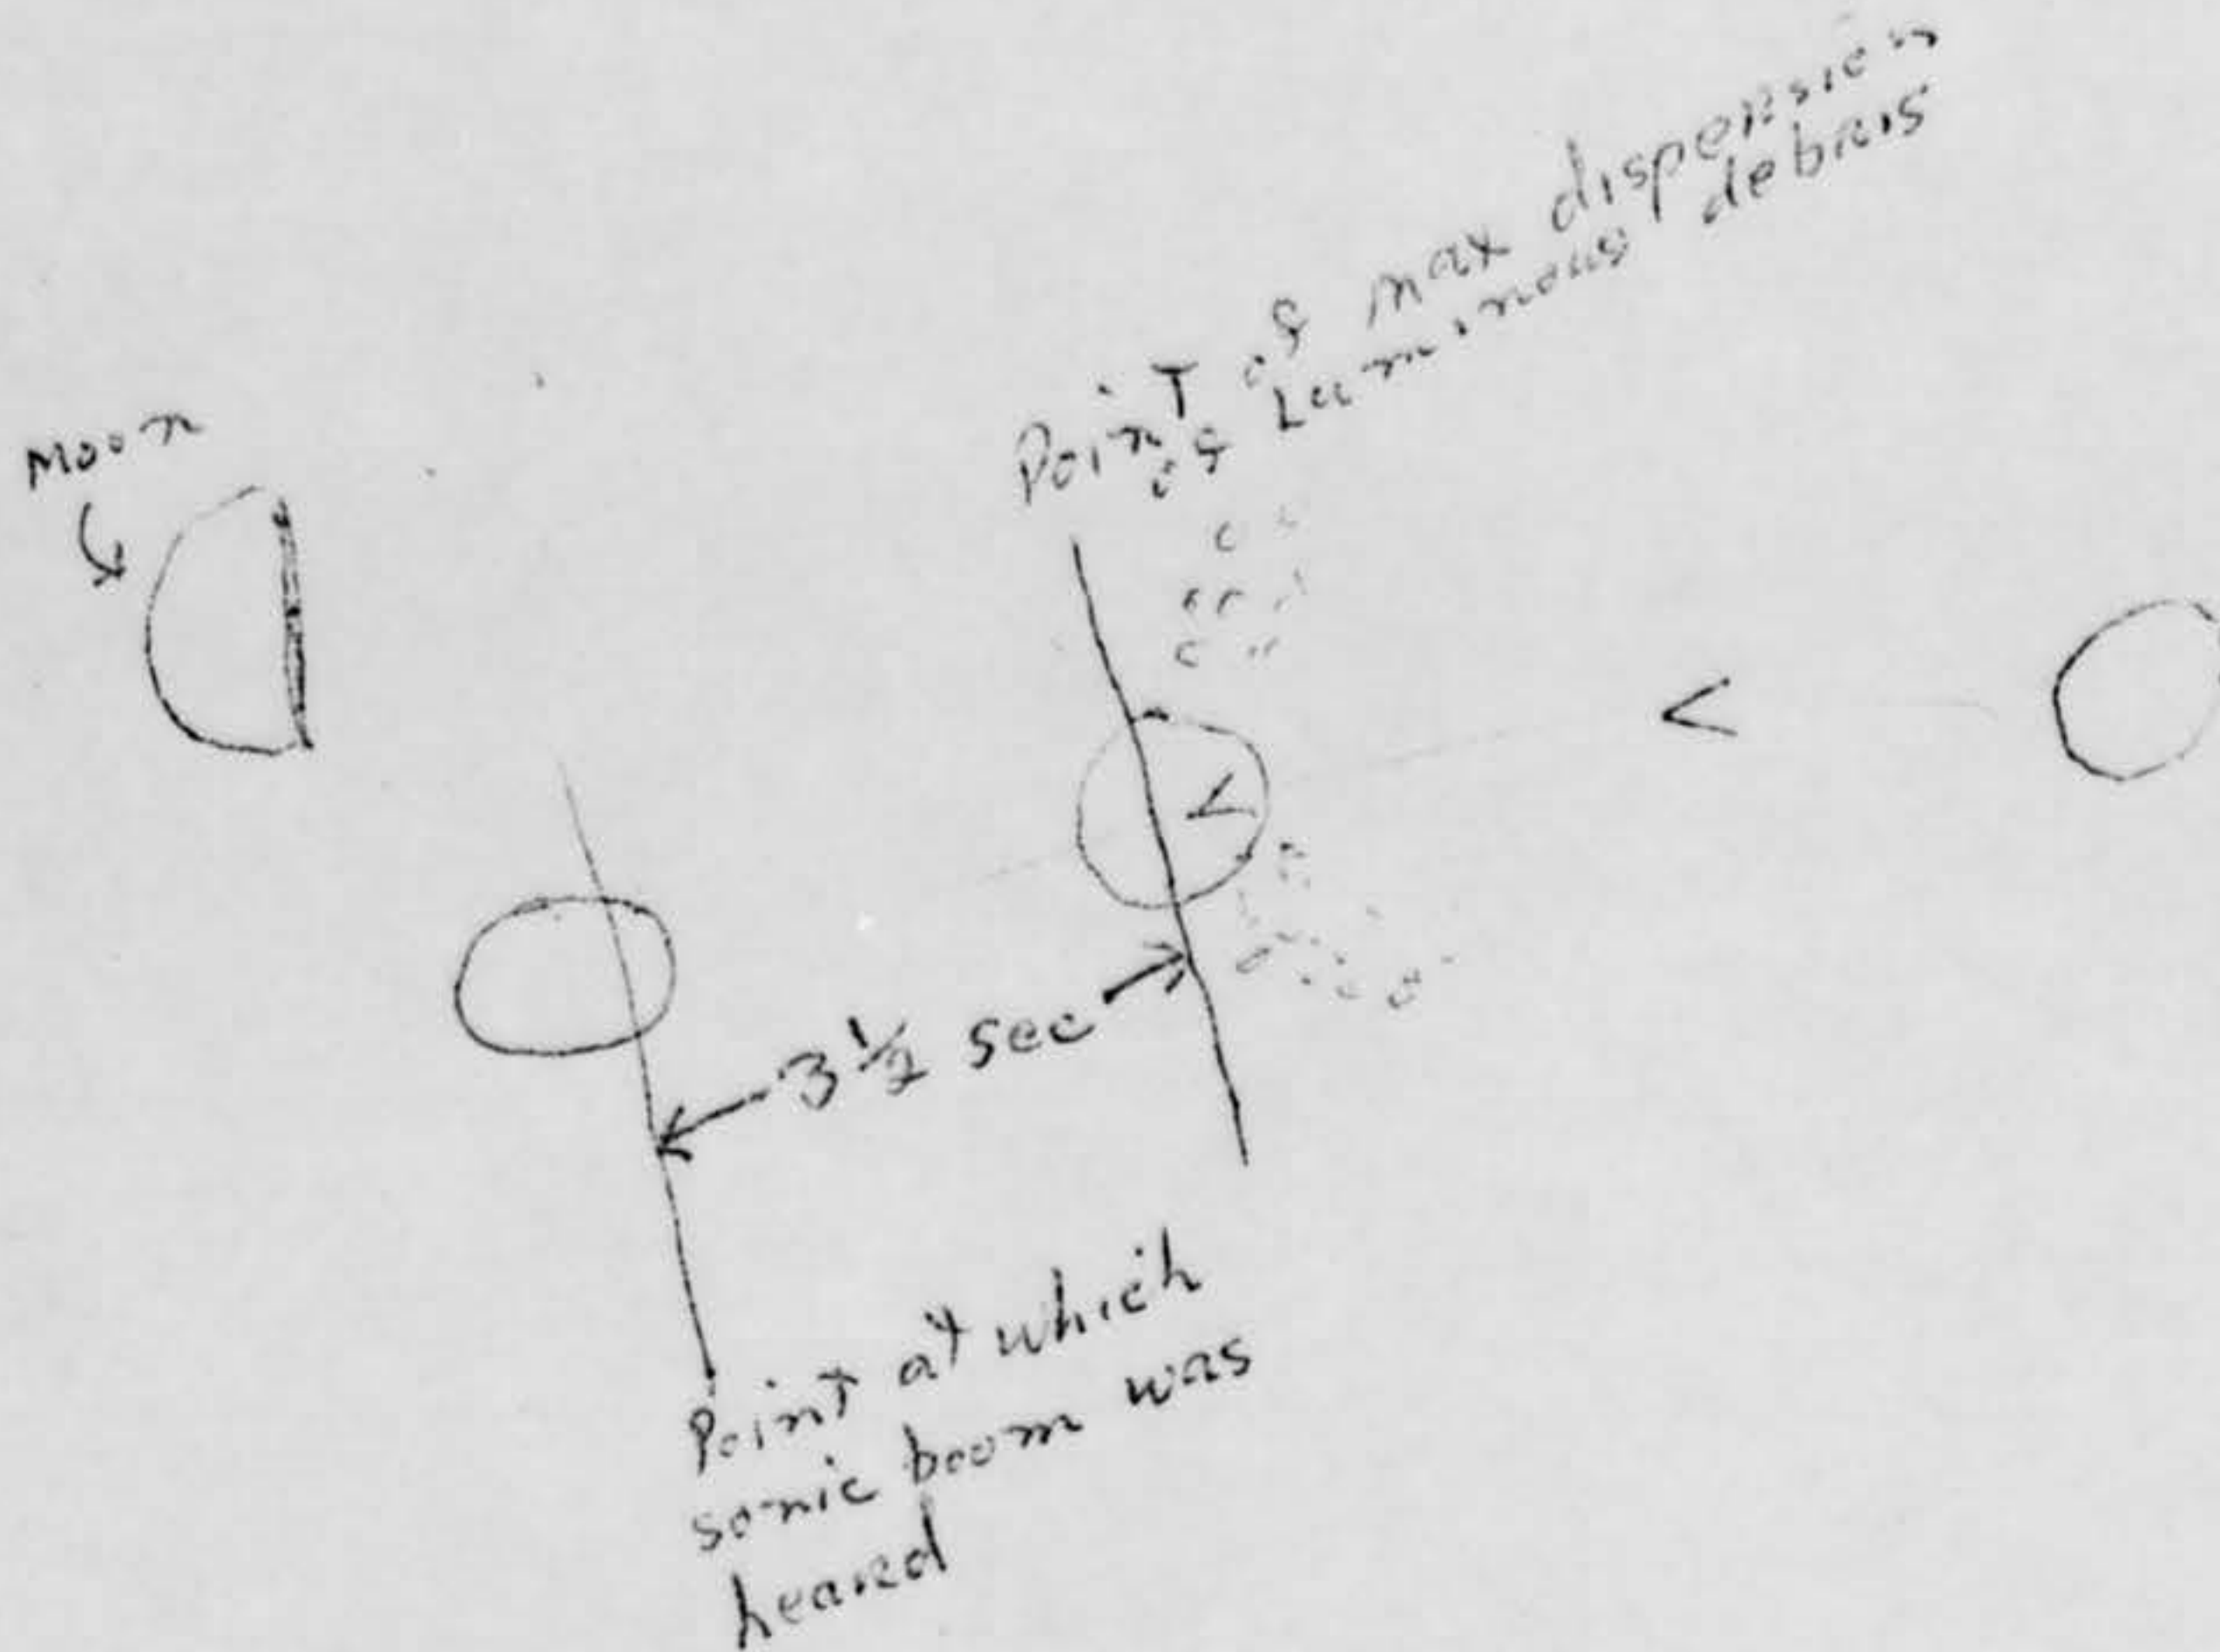 Moon
Point of max dispersion
of Luminous debris
3 ½ sec
Point at which
sonic boom was
heard